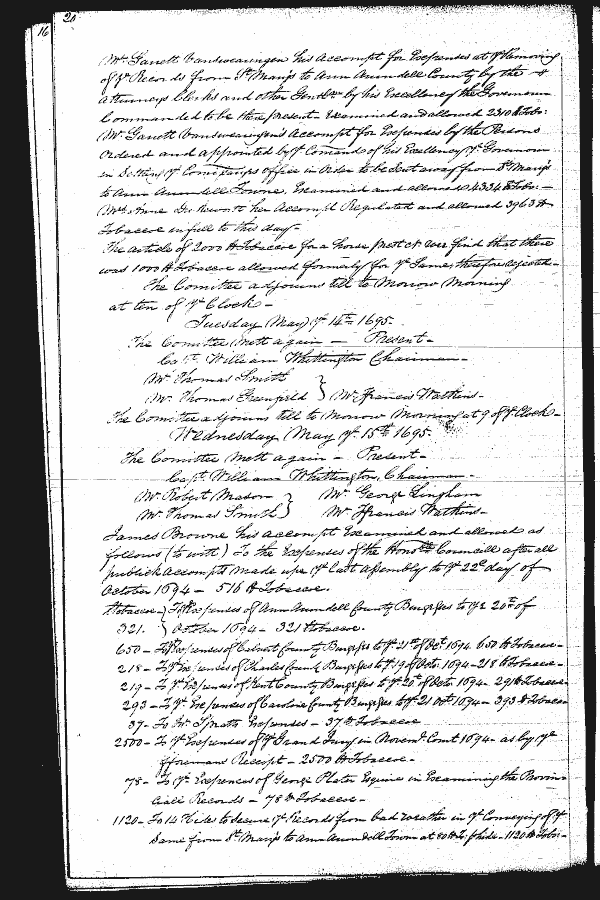 20
16
Mr. Garrett Vansweringen his Accompt for Expenses at ye Removing
of ye Records from St. Marys to Ann Arundell County by the
Attorneys Clerks and other Gentlen by his Excellency the Governour
Commanded to be there present Examined and allowed 2310 lb Tob:
Mr. Garrett Vansweringen's Accompt for Expenses by the Persons
Ordered and appointed by ye Comand of his Excellency ye Governour
in Setting ye Comissarys Office in Order to be Sent away from St. Marys
to Ann Arundell Towne Examined and allowed 4334 lb Tob: -
Mrs. Anne her Accompt Regulated and allowed 3963 lb
Tobaccoe in full to this day -
The article of 2000 lb Tobaccoe for a horse prest &c wee find that there
was 1000 lb Tobaccoe allowed formerly for ye Same therefore rejected -
The Comittee adjourns till to Morrow Morning
at ten of ye Clock -
Tuesday May ye 14th 1695.
The Comittee Mett again - Present -
Capt. William Whittington Chairman -
Mr. Thomas Smith
Mr. Thomas Greenfield } Mr. Francis Watkins -
The Comittee adjourns till to Morrow Morning at 9 of ye Clock -
Wednesday May ye 15th 1695.
The Comittee Mett again - Present -
Capt. William Whittington, Chairman -
Mr. Robert Mason } Mr. George Lingham
Mr. Thomas Smith } Mr. Francis Watkins -
James Browne his accompt Examined and allowed as
follows (to witt) To the Expenses of the Honoble Councill after all
publick accompts made up ye last assembly to ye 22d day of
October 1694 - 516 lb Tobaccoe.
Tobaccoe } To ye Expenses of Ann Arundell County Burgesses to ye 20th of
321. } October 1694 - 321 lb Tobaccoe.
650 - To ye Expenses of Calvert County Burgesses to ye 21st of Octr. 1694 650 lb Tobaccoe -
218 - To ye Expenses of Charles County Burgesses to ye 19 of Octr. 1694 - 218 lb Tobaccoe -
219 - To ye Expenses of Kent County Burgesses to ye 20th of Octr. 1694 - 219 lb Tobaccoe -
293 - To ye Expenses of County Burgesses to ye 21 Octr. 1694 - 393 lb Tobaccoe
37 - To Expenses - 37 lb Tobaccoe
2500 - To ye Expenses of ye Grand Jury in Novemr. Court 1694 - as by ye
fforemans Receipt - 2500 lb Tobaccoe -
78 - To ye Expences of George Plater Esquire in Examining the Provin-
ciall Records - 78 lb Tobaccoe -
1120 - To 14 Hides to secure ye Records from bad weather in ye Conveying of ye
Same from St. Marys to Ann Arundell Town at 80 lb Tob p hide - 1120 lb Tobo. -